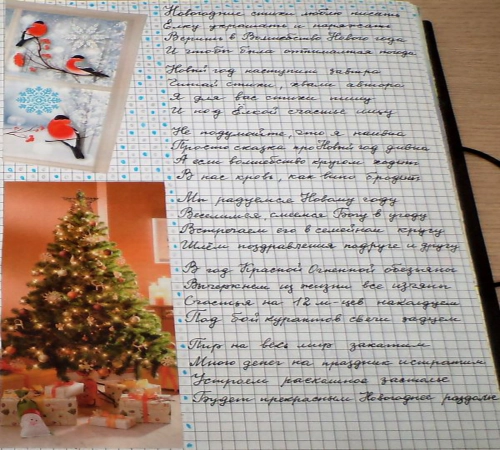 Новогодние стихи люблю писать
Ёлку украшать и наряжать
Верить в Волшебство Нового года
И чтобы была отличная погода
Новый год наступит завтра
Читай стихи, хвали автора
Я для вас стихи пишу
И под Ёлкой счастье ищу
Не подумайте, что я наивна
Просто сказка про Новый год дивна
А если волшебство кругом ходит
В нас кровь, как вино бродит
Мы радуемся Новому году
Веселимся, смеёмся Богу в угоду
Встречаем его в семейном кругу
Шлём поздравления подруге и другу
В год Красной Огненной обезьяны
Вычеркнем из жизни все изъяны
Счастья на 12 м-цев наколдуем
Под бой курантов свечи задуем
Пир на весь мир закатим
Много денег на праздник истратим
Устроем роскошное застолье
Будет прекрасным Новогоднее раздолье